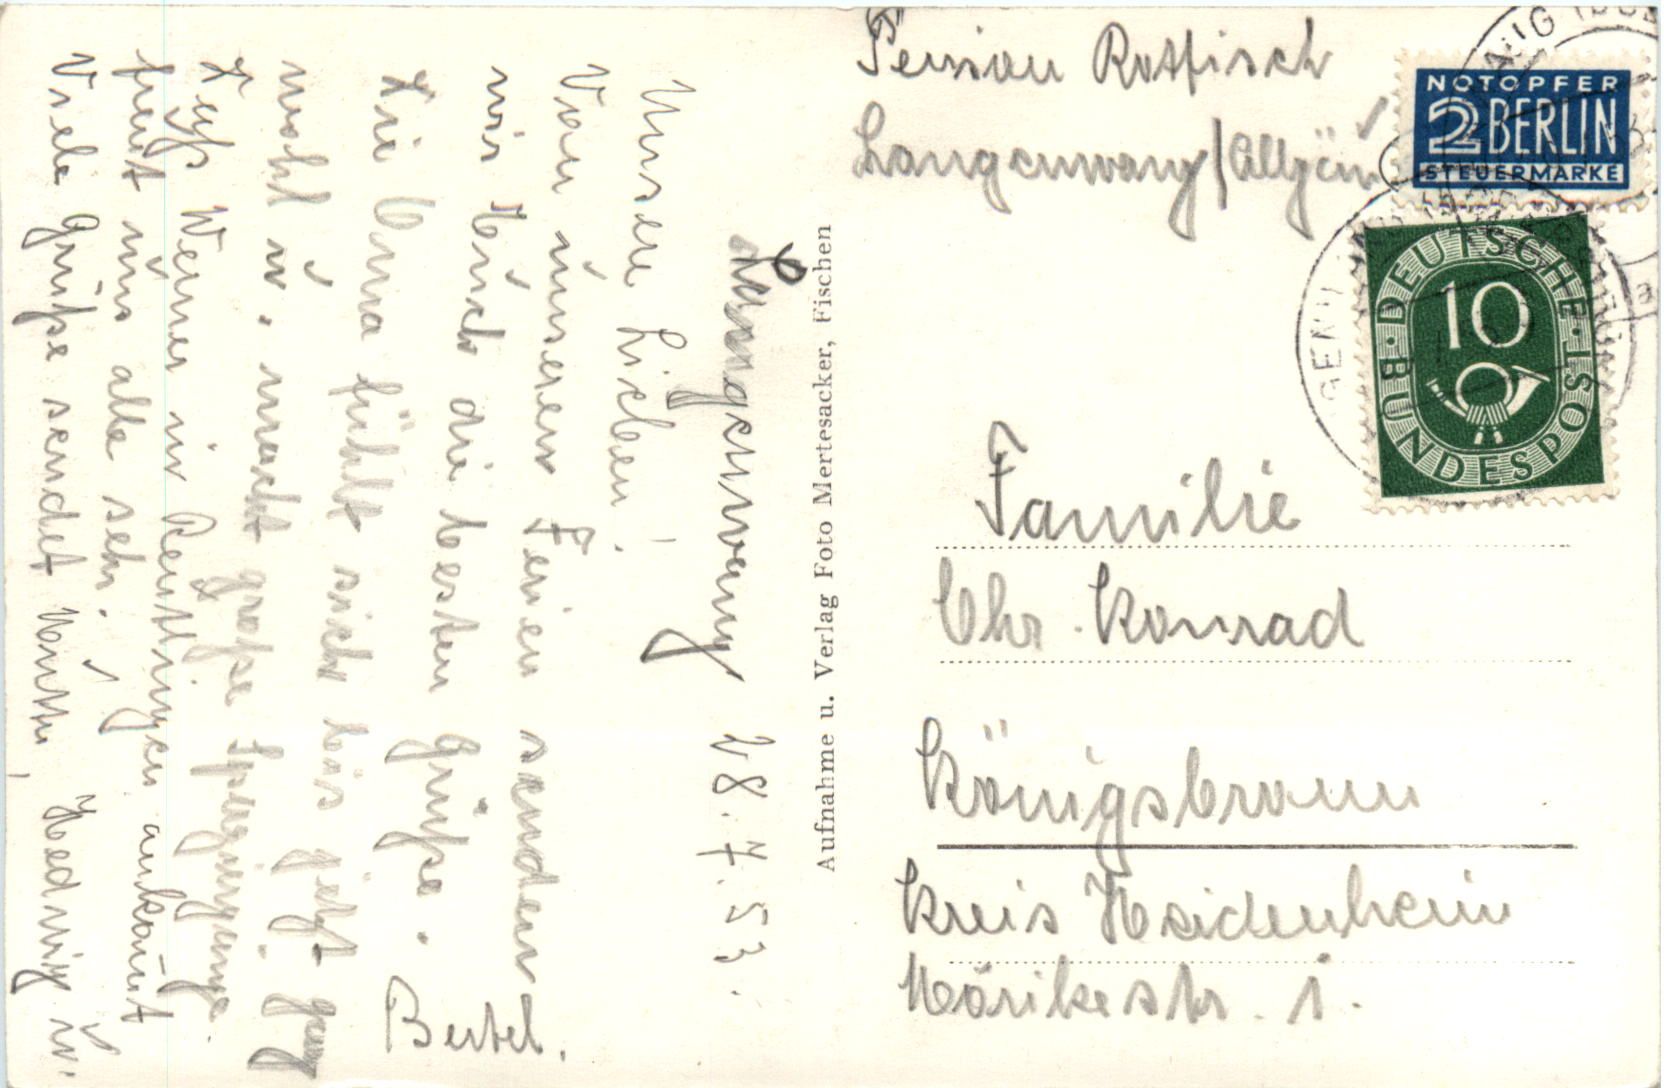 Langenwang 28.7.53.
Unsere Lieben!
Von unseren Ferien senden
wir Euch die besten Grüße.
Die Oma fühlt sich bis jetzt ganz
wohl u. macht große Spaziergänge.
Daß Werner in Reutlingen ankommt
freut uns alle sehr.
Viele Grüße sendet Hedwig u.
Bertel.
Aufnahme u. Verlag Foto Mertesacker, Fischen
Pension Rotfisch
Langenwang/Allgäu
NOTOPFER
2 BERLIN
STEUERMARKE
DEUTSCHE BUNDESPOST
10
Familie
Chr. Konrad
Königsbronn
Kreis Heidenheim
Mörikestr. 1.